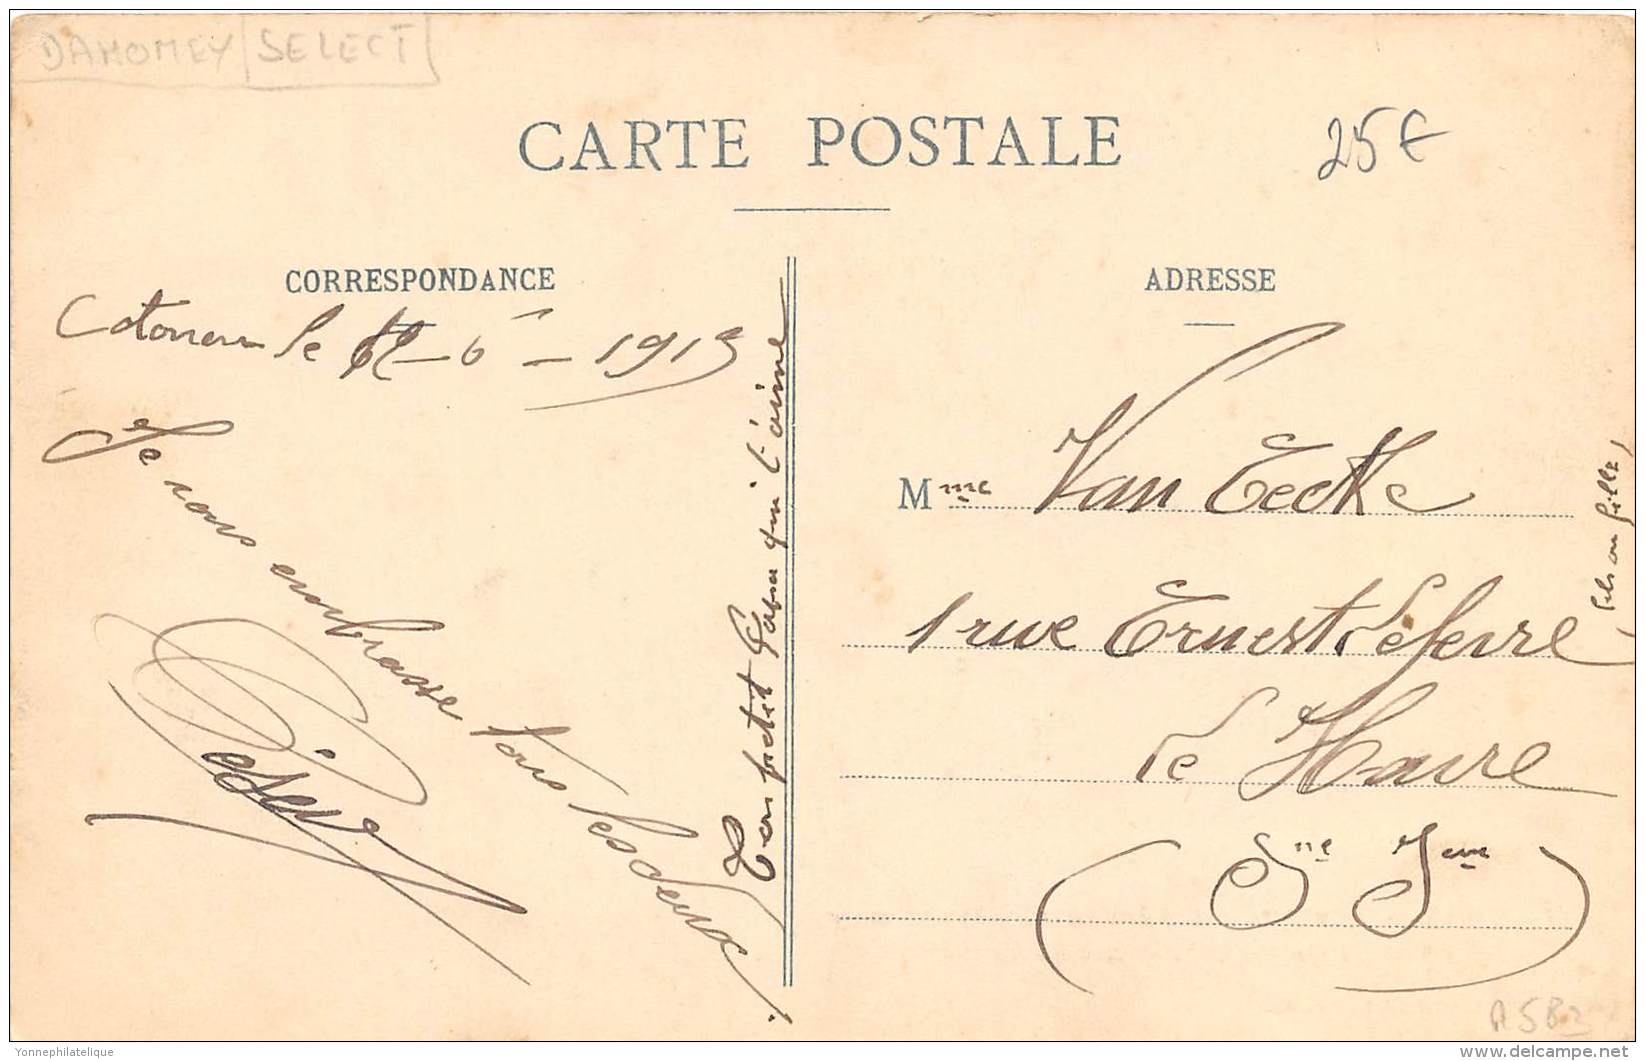 DAHOMEY SELECT
CARTE POSTALE
25€
CORRESPONDANCE
Cotonou le 12-6-1913
Je vous embrasse tous les deux
Désiré
Ton petit Papa qui t'aime
ADRESSE
Mme Van Eecke
1 rue Ernest Lefevre
Le Havre
(Sne Ireure)
ou fille
Yonnephilatelique
delcampe.net